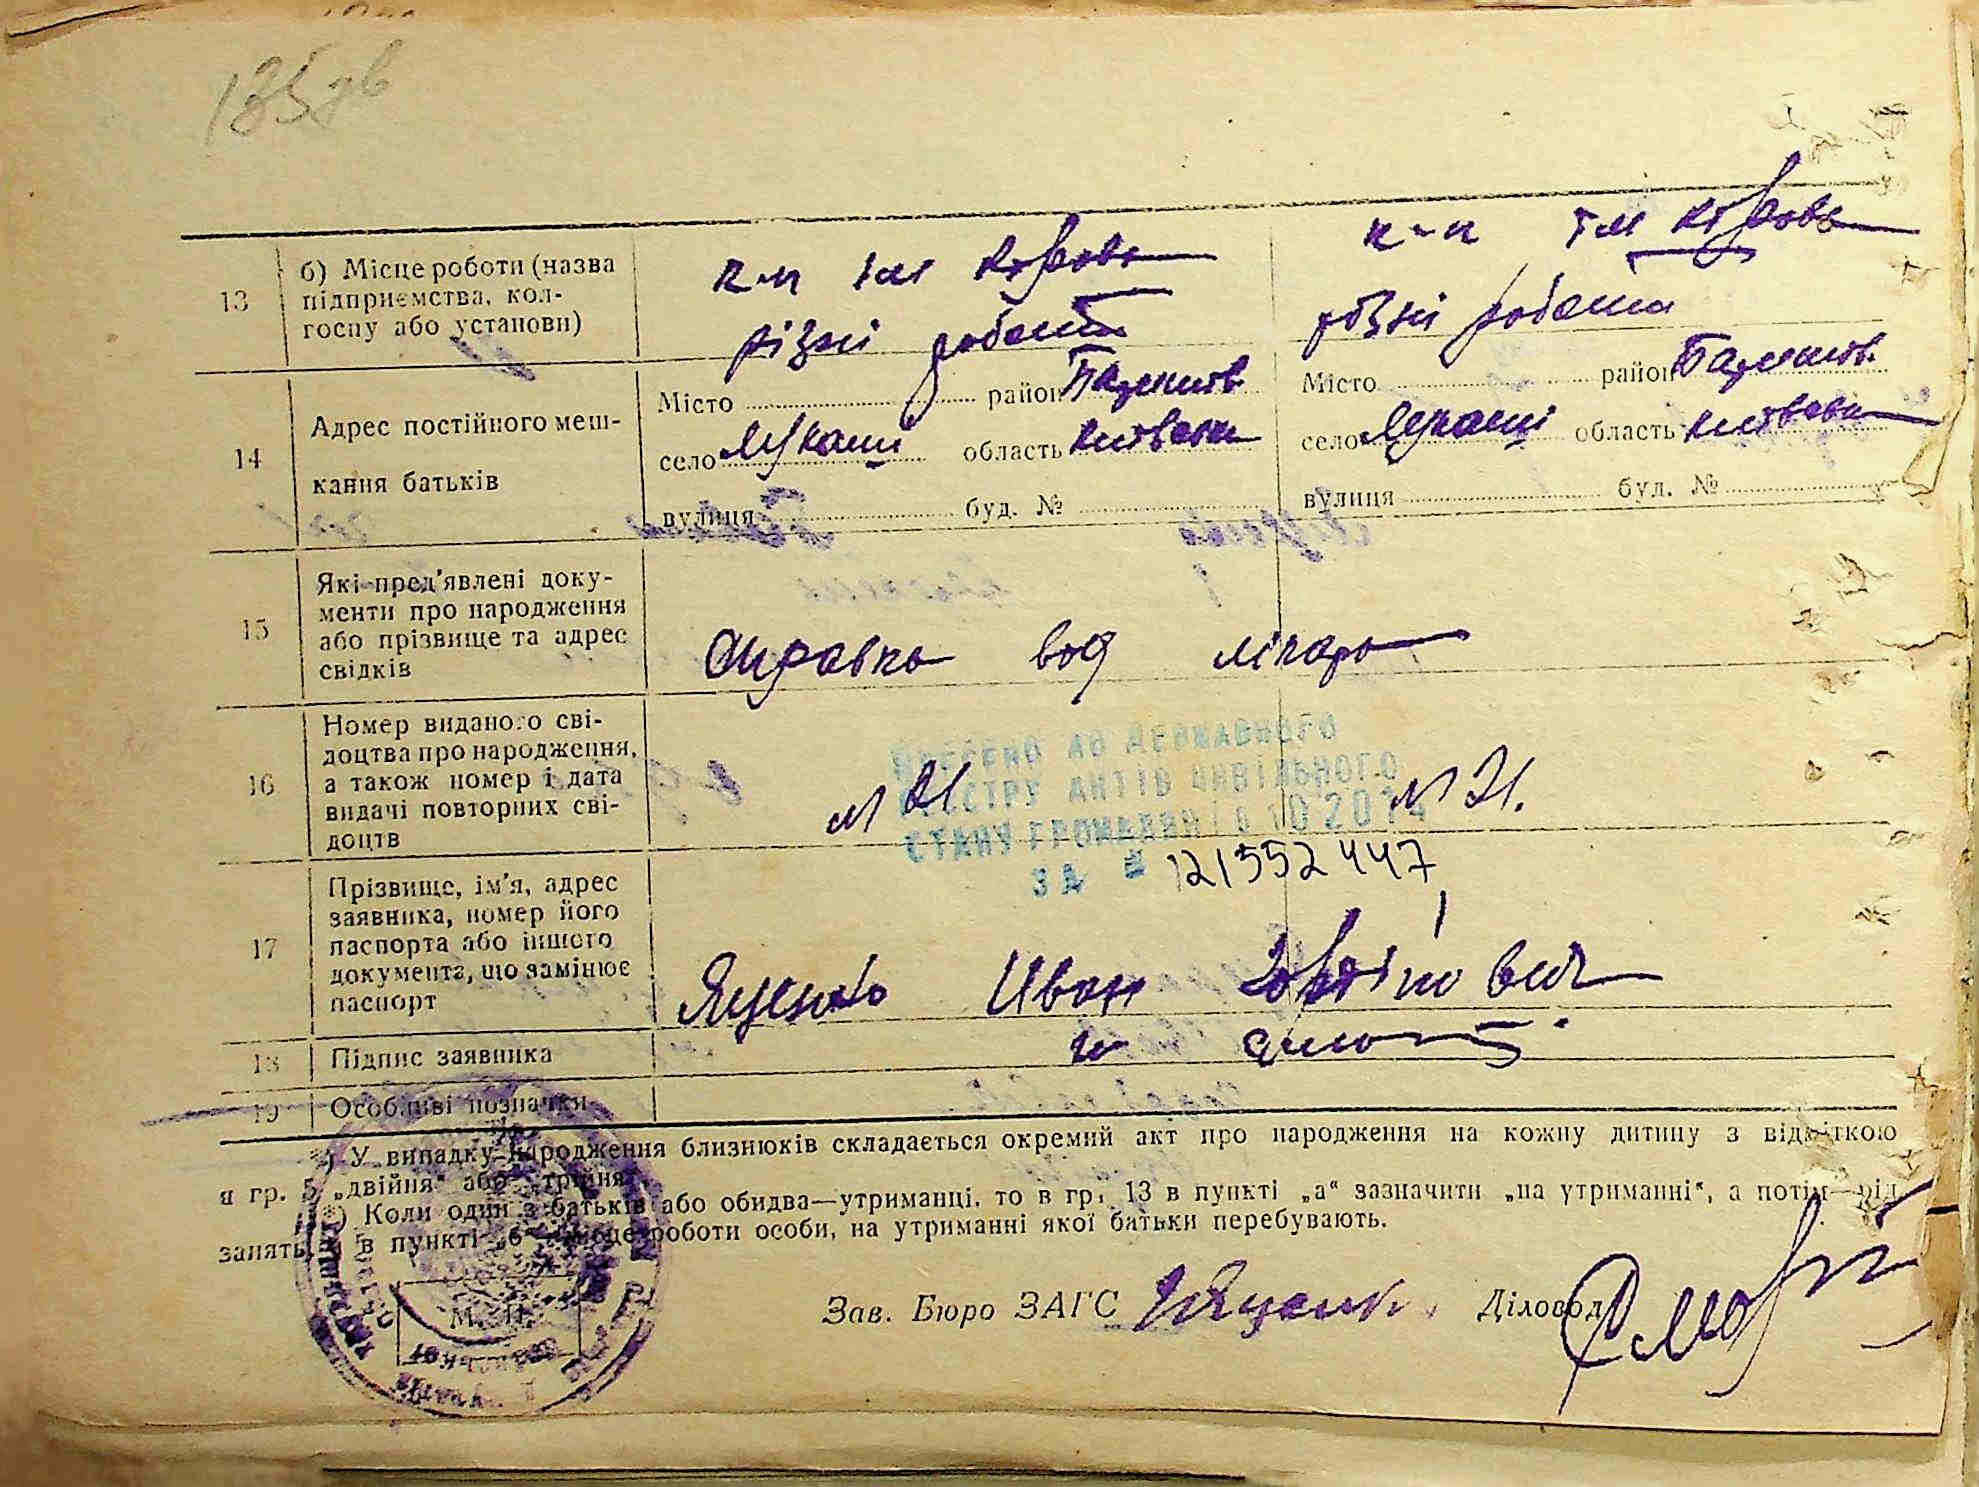 135 зв
13
б) Місце роботи (назва
підприємства, кол-
госпу або установи)
к-п ім Кірова
різні роботи
к-п ім Кірова
різні роботи
14
Адрес постійного меш-
кання батьків
Місто район
село Лукаші область Київська
вулиця буд. №
Місто район
село Лукаші область Київська
вулиця буд. №
15
Які пред'явлені доку-
менти про народження
або прізвище та адрес
свідків
Справка вод лікаря
16
Номер виданого сві-
доцтва про народження,
а також номер і дата
видачі повторних сві-
доцтв
№ 21 № 21.
ВНЕСЕНО ДО ДЕРЖАВНОГО
РЕЄСТРУ АКТІВ ЦИВІЛЬНОГО
СТАНУ ГРОМАДЯН 10 2014
ЗА № 121552447
17
Прізвище, ім'я, адрес
заявника, номер його
паспорта або іншого
документа, що замінює
паспорт
Яценко Иван
18
Підпис заявника
19
Особливі позначки
*) У випадку народження близнюків складається окремий акт про народження на кожну дитину з відміткою
в гр. 5 „двійня" або „трійня".
) Коли один з батьків або обидва—утриманці, то в гр. 13 в пункті „а" зазначити „на утриманні", а потім—рід
занять, а в пункті „б" місце роботи особи, на утриманні якої батьки перебувають.
М. П.
Зав. Бюро ЗАГС Діловод